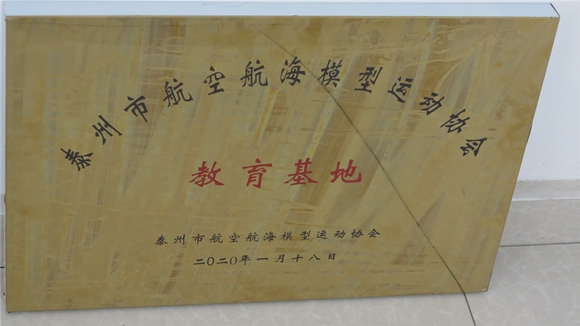 泰州市航空航海模型运动协会
教育基地
泰州市航空航海模型运动协会
二〇二〇年一月十八日